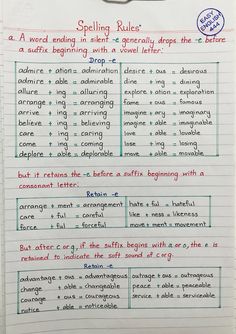 Spelling Rules
EASY ENGLISH 4 All
a. A word ending in silent -e generally drops the -e before
a suffix beginning with a vowel letter.
Drop -e
admire + ation = admiration desire + ous = desirous
admire + able = admirable dine + ing = dining
allure + ing = alluring explore + ation = exploration
arrange + ing = arranging fame + ous = famous
arrive + ing = arriving imagine + ary = imaginary
believe + ing = believing imagine + able = imaginable
care + ing = caring love + able = lovable
come + ing = coming lose + ing = losing
deplore + able = deplorable move + able = movable
but it retains the -e before a suffix beginning with a
consonant letter.
Retain -e
arrange + ment = arrangement hate + ful = hateful
care + ful = careful like + ness = likeness
force + ful = forceful move + ment = movement
But after c or g, if the suffix begins with a or o, the e is
retained to indicate the soft sound of c or g.
Retain -e
advantage + ous = advantageous outrage + ous = outrageous
change + able = changeable peace + able = peaceable
courage + ous = courageous service + able = serviceable
notice + able = noticeable